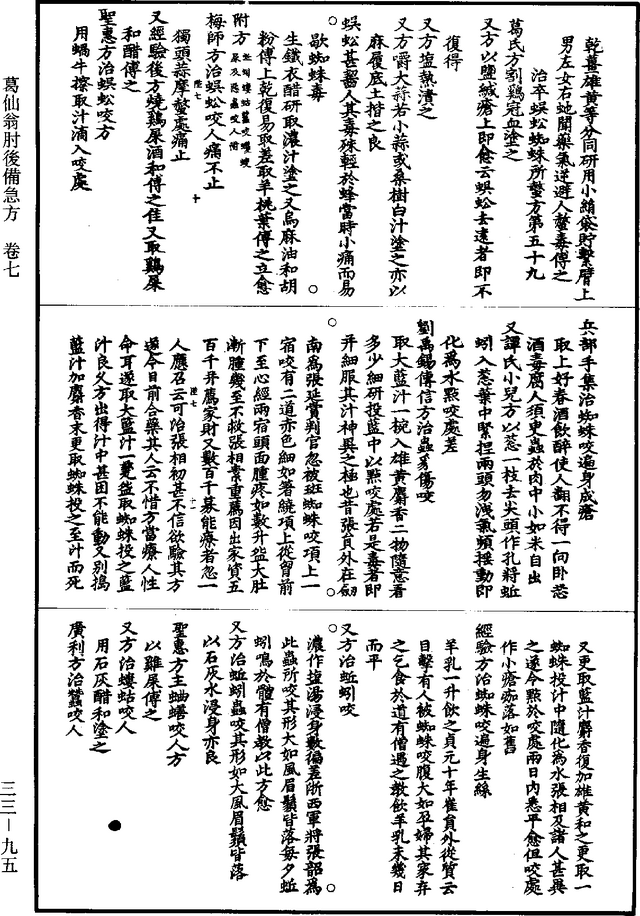 乾薑雄黃等分同研用小絹袋貯繫臂上
男左女右蛇聞藥氣逆避人螫毒傅之
治卒蜈蚣蜘蛛所螫方第五十九
葛氏方割鷄冠血塗之
又方以鹽緘瘡上即愈云蜈蚣去遠者即不
復得
又方鹽熱漬之
又方嚼大蒜若小蒜或桑樹白汁塗之亦以
麻履底土揩之良
蜈蚣甚嚙人其毒殊輕於蜂當時小痛而易
歇蜘蛛毒
生鐵衣醋研取濃汁塗之又烏麻油和胡
粉傅上乾復易取差取羊桃葉傅之立愈
附方
梅師方治蜈蚣咬人痛不止
獨頭蒜摩螫處痛止
又經驗後方燒鷄屎酒和傅之佳又取鷄屎
和醋傅之
聖惠方治蜈蚣咬方
用蝸牛擦取汁滴入咬處
兵部手集治蜘蛛咬遍身成瘡
取上好春酒飲醉使人翻不得一向臥恐
酒毒腐人須更蟲於肉中小如米自出
又譚氏小兒方以蔥一枝去尖頭作孔將蚯
蚓入蔥葉中緊捏兩頭勿洩氣頻搖動即
化為水點咬處差
劉禹錫傳信方治蟲豸傷咬
取大藍汁一椀入雄黃麝香二物隨意看
多少細研投藍中以點咬處若是毒者即
并細服其汁神異之極也昔張員外在劍
南為張延賞判官忽被斑蜘蛛咬項上一
宿咬有二道赤色細如箸繞項上從胷前
下至心經兩宿頭面腫疼如數升盌大肚
漸腫幾至不救張相素重薦因出家資五
百千并薦家財又數百千募能療者忽一
人應召云可治張相初甚不信欲驗其方
遂令目前合藥其人云不惜方當療人性
命耳遂取大藍汁一甕盌取蜘蛛投之藍
汁良久方出得汁中甚困不能動又別搗
藍汁加麝香末更取蜘蛛投之至汁而死
又更取藍汁麝香復加雄黃和之更取一
蜘蛛投汁中隨化為水張相及諸人甚異
之遂令點於咬處兩日內悉平愈但咬處
作小瘡痂落如舊
經驗方治蜘蛛咬遍身生絲
羊乳一升飲之貞元十年崔員外從質云
目擊有人被蜘蛛咬腹大如孕婦其家弃
之乞食於道有僧遇之教飲羊乳未幾日
而平
又方治蚯蚓咬
濃作鹽湯浸身數徧差浙西軍將張韶為
此蟲所咬其形大如風眉鬚皆落每夕蚯
蚓鳴於體有僧教以此方愈
又方治蚯蚓蟲咬其形如大風眉鬚皆落
以石灰水浸身亦良
聖惠方主蛐蟮咬人方
以雞屎傅之
又方治螻蛄咬人
用石灰醋和塗之
廣利方治蠶咬人
葛仙翁肘後備急方 卷七
三三－九五